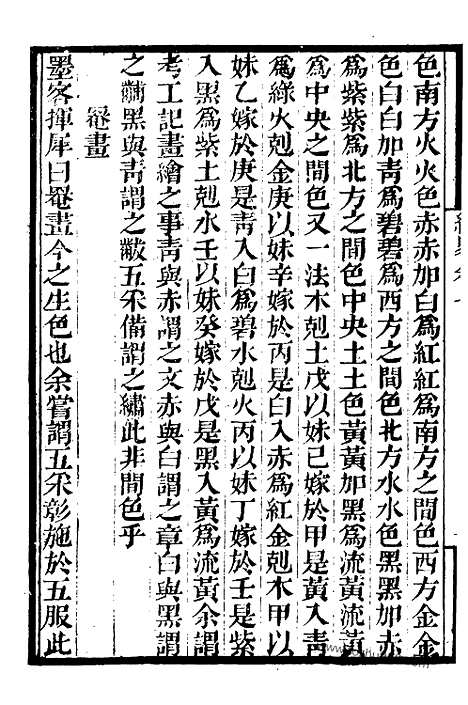 色南方火火色赤赤加白爲紅紅爲南方之間色西方金金
色白白加靑爲碧碧爲西方之間色北方水水色黑黑加赤
爲紫紫爲北方之間色中央土土色黃黃加黑爲流黃流黃
爲中央之間色又一法木剋土戊以妹己嫁於甲是黃入靑
爲綠火剋金庚以妹辛嫁於丙是白入赤爲紅金剋木甲以
妹乙嫁於庚是靑入白爲碧水剋火丙以妹丁嫁於壬是紫
入黑爲紫土剋水壬以妹癸嫁於戊是黑入黃爲流黃余謂
考工記畫繪之事靑與赤謂之文赤與白謂之章白與黑謂
之黼黑與靑謂之黻五采備謂之繡此非間色乎
罨畫
墨客揮犀曰罨畫今之生色也余嘗謂五采彰施於五服此